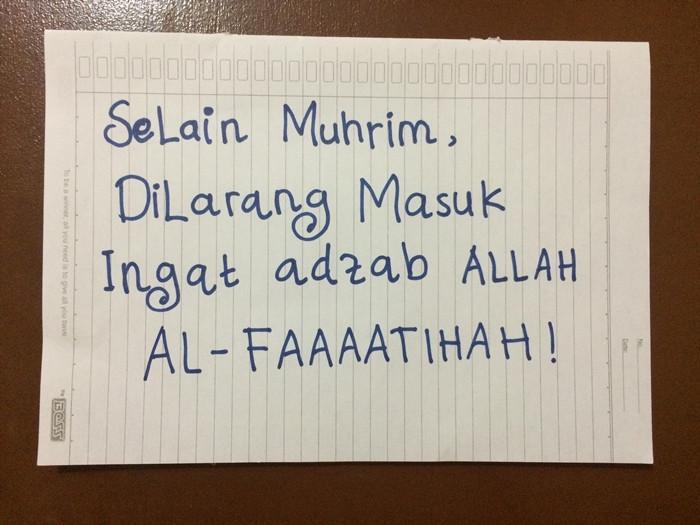 SeLain Muhrim,
DiLarang Masuk
Ingat adzab ALLAH
AL-FAAAATIHAH!
To be a winner, all you need is to give all you have
No.
Date.